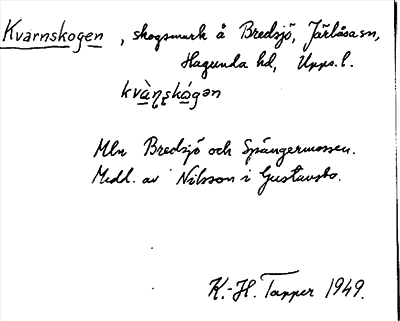 Kvarnskogen, skogsmark å Bredsjö, Järlåsa sn,
Hagunda hd, Upps. l.
kvàɳʂkógən
Mln Bredsjö och Spångermossen.
Medd. av Nilsson i Gustavsbo.
K.-H. Tapper 1949.